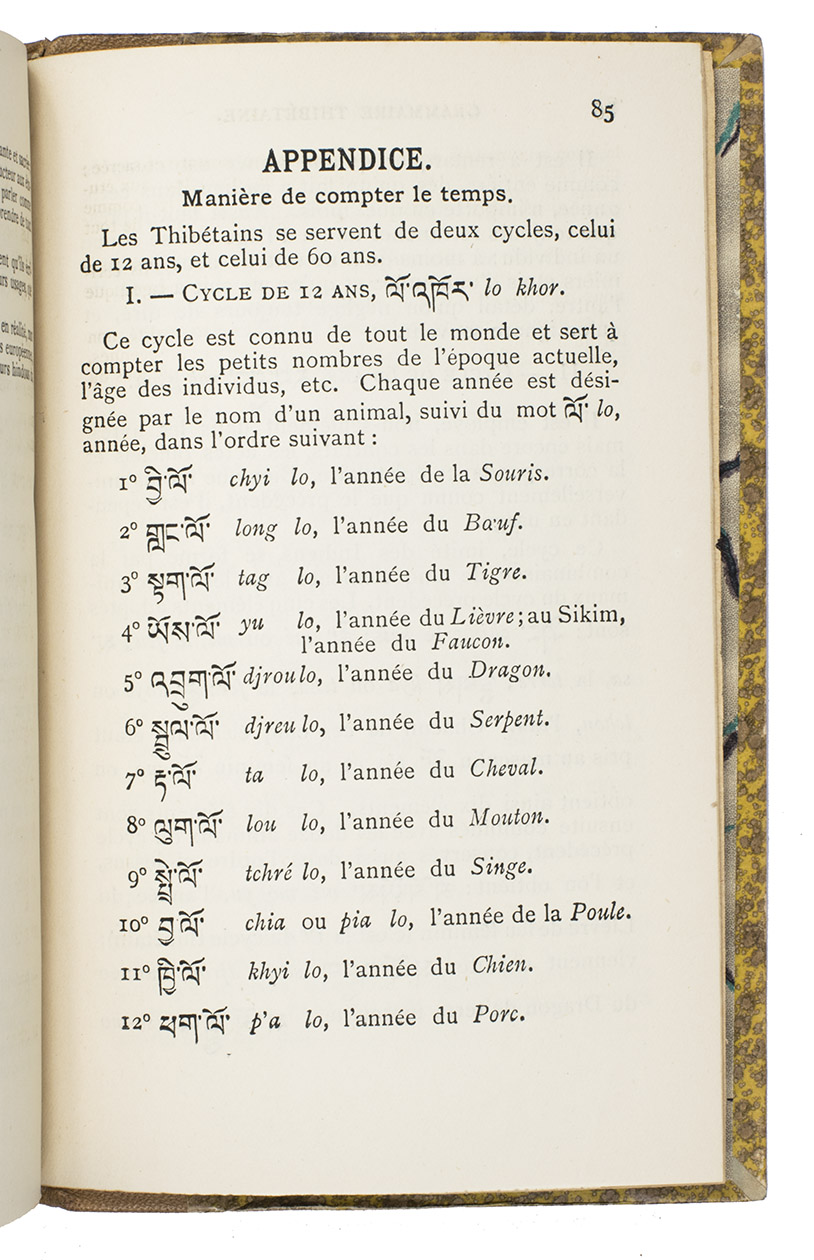 85
APPENDICE.
Manière de compter le temps.
Les Thibétains se servent de deux cycles, celui
de 12 ans, et celui de 60 ans.
I. — CYCLE DE 12 ANS, ལོ་འཁོར་ lo khor.
Ce cycle est connu de tout le monde et sert à
compter les petits nombres de l'époque actuelle,
l'âge des individus, etc. Chaque année est dési-
gnée par le nom d'un animal, suivi du mot ལོ་ lo,
année, dans l'ordre suivant :
1º བྱི་ལོ་ chyi lo, l'année de la Souris.
2º གླང་ལོ་ long lo, l'année du Bœuf.
3º སྟག་ལོ་ tag lo, l'année du Tigre.
4º ཡོས་ལོ་ yu lo, l'année du Lièvre; au Sikim,
l'année du Faucon.
5º འབྲུག་ལོ་ djrou lo, l'année du Dragon.
6º སྦྲུལ་ལོ་ djreu lo, l'année du Serpent.
7º རྟ་ལོ་ ta lo, l'année du Cheval.
8º ལུག་ལོ་ lou lo, l'année du Mouton.
9º སྤྲེ་ལོ་ tchré lo, l'année du Singe.
10º བྱ་ལོ་ chia ou pia lo, l'année de la Poule.
11º ཁྱི་ལོ་ khyi lo, l'année du Chien.
12º ཕག་ལོ་ p'a lo, l'année du Porc.